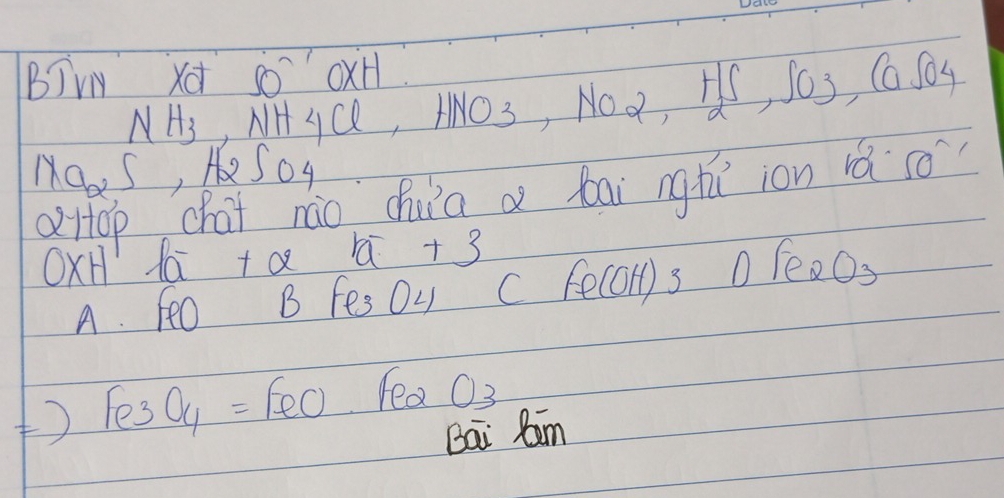 Date
BTVN Xđ số OXH.
NH3, NH4Cl, HNO3, NO2, H2S, SO3, CaSO4
Na2S, H2SO4.
2 Hợp chất nào chứa 2 loại nghtử ion và số
OXH là +2 và +3
A. FeO B Fe3O4 C Fe(OH)3 D Fe2O3
=) Fe3O4 = FeO. Fe2O3
Bài làm